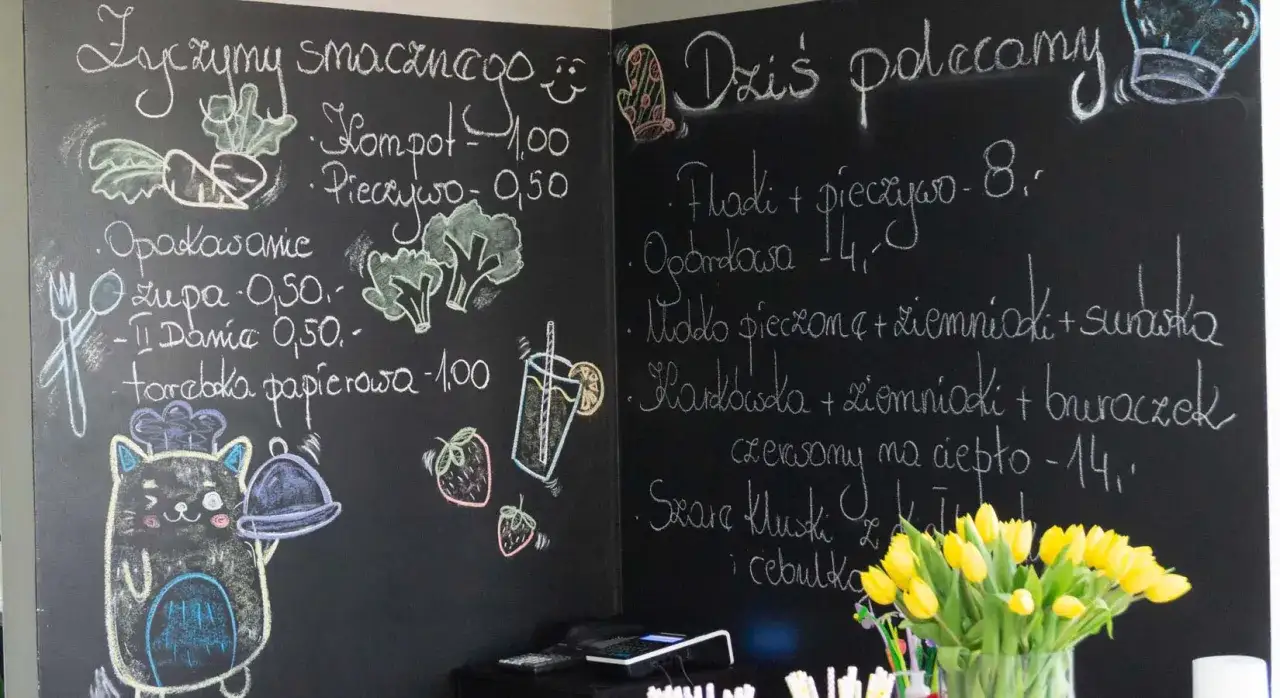 Życzymy smacznego
· Kompot - 1.00
· Pieczywo - 0,50
· Opakowanie
- zupa - 0,50.-
- II Danie 0,50.-
- torebka papierowa - 1.00
Dziś polecamy
· Flaki + pieczywo - 8.-
· Ogórkowa - 4.-
· Udko pieczone + ziemniaki + surówka
· Karkówka + ziemniaki + buraczek
czerwony na ciepło - 14.-
· Szare kluski z
i cebulką